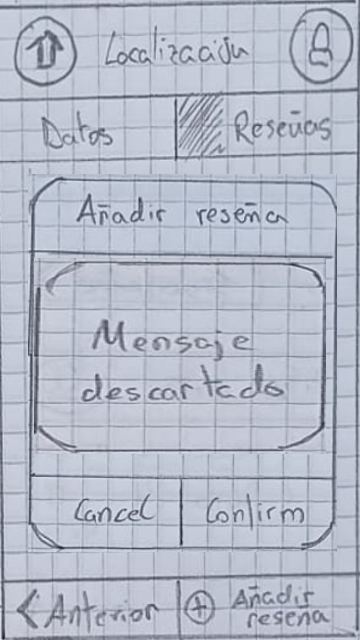 Localización
Datos
Reseñas
Añadir reseña
Mensaje
descartado
Cancel
Confirm
< Anterior
Añadir
reseña